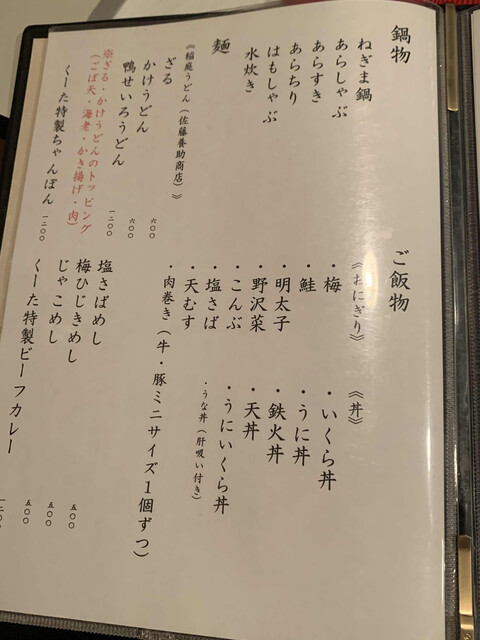 鍋物
ねぎま鍋
あらしゃぶ
あらすき
あらちり
はもしゃぶ
水炊き
麺
《稲庭うどん(佐藤養助商店)》
ざる 六〇〇
かけうどん 六〇〇
鴨せいろうどん 一二〇〇
※ざる・かけうどんのトッピング
(ごぼ天・海老・かき揚げ・肉)
くーた特製ちゃんぽん 一二〇〇
ご飯物
《おにぎり》
・梅
・鮭
・明太子
・野沢菜
・こんぶ
・塩さば
・天むす
・肉巻き(牛・豚ミニサイズ1個ずつ)
《丼》
・いくら丼
・うに丼
・鉄火丼
・天丼
・うにいくら丼
・うな丼(肝吸い付き)
塩さばめし 五〇〇
梅ひじきめし 五〇〇
じゃこめし 五〇〇
くーた特製ビーフカレー 一二〇〇